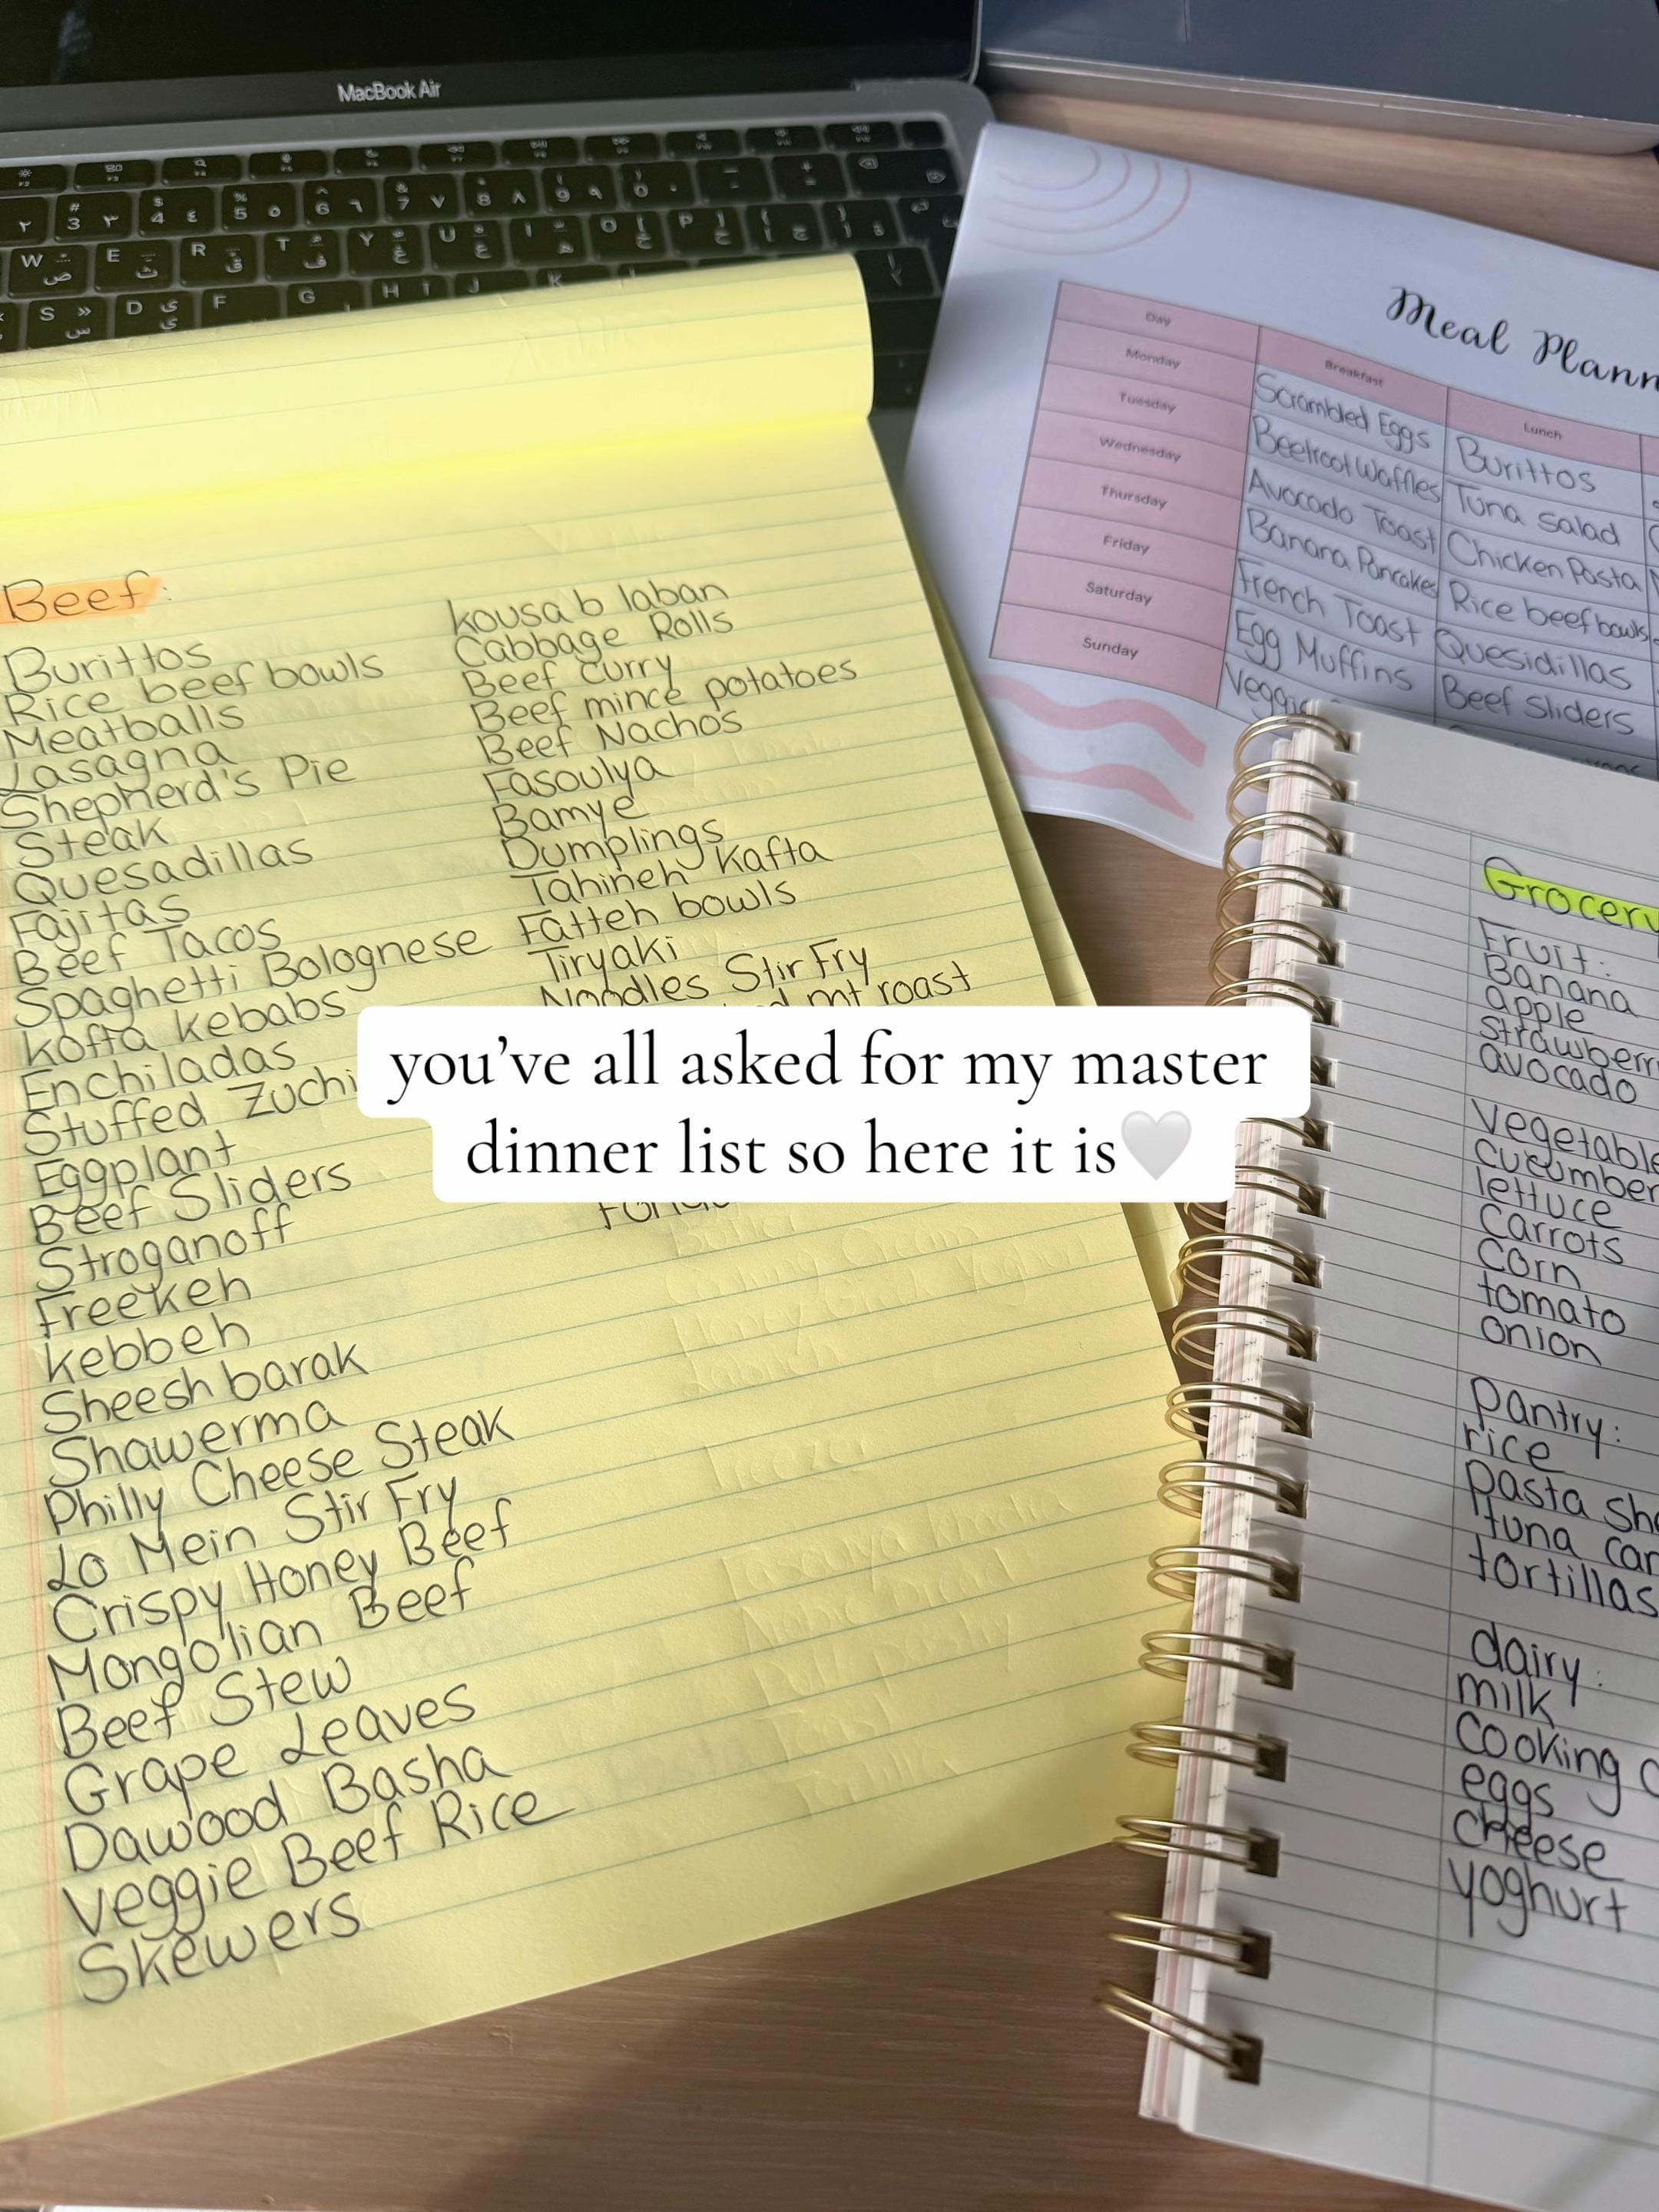 MacBook Air
Beef:
Burittos
Rice beef bowls
Meatballs
Lasagna
Shepherd's Pie
Steak
Quesadillas
Fajitas
Beef Tacos
Spaghetti Bolognese
kofta kebabs
Enchiladas
Stuffed Zuchi
Eggplant
Beef Sliders
Stroganoff
Freekeh
kebbeh
Sheesh barak
Shawerma
Philly Cheese Steak
Lo Mein Stir Fry
Crispy Honey Beef
Mongolian Beef
Beef Stew
Grape Leaves
Dawood Basha
Veggie Beef Rice
Skewers
kousa b laban
Cabbage Rolls
Beef Curry
Beef mince potatoes
Beef Nachos
Fasoulya
Bamye
Dumplings
Tahineh Kafta
Fatteh bowls
Tiryaki
Noodles Stir Fry
roast
you've all asked for my master
dinner list so here it is🤍
Meal Plann
Day Breakfast Lunch
Monday Scrambled Eggs Burittos
Tuesday Beetroot Waffles Tuna Salad
Wednesday Avocado Toast Chicken Pasta
Thursday Banana Pancakes Rice beef bowls
Friday French Toast Quesidillas
Saturday Egg Muffins Beef Sliders
Sunday Veggie
Grocery
Fruit:
Banana
apple
strawberr
avocado
Vegetable
cucumber
lettuce
Carrots
Corn
tomato
onion
Pantry:
rice
pasta
tuna can
tortillas
dairy:
milk
Cooking
eggs
cheese
yoghurt